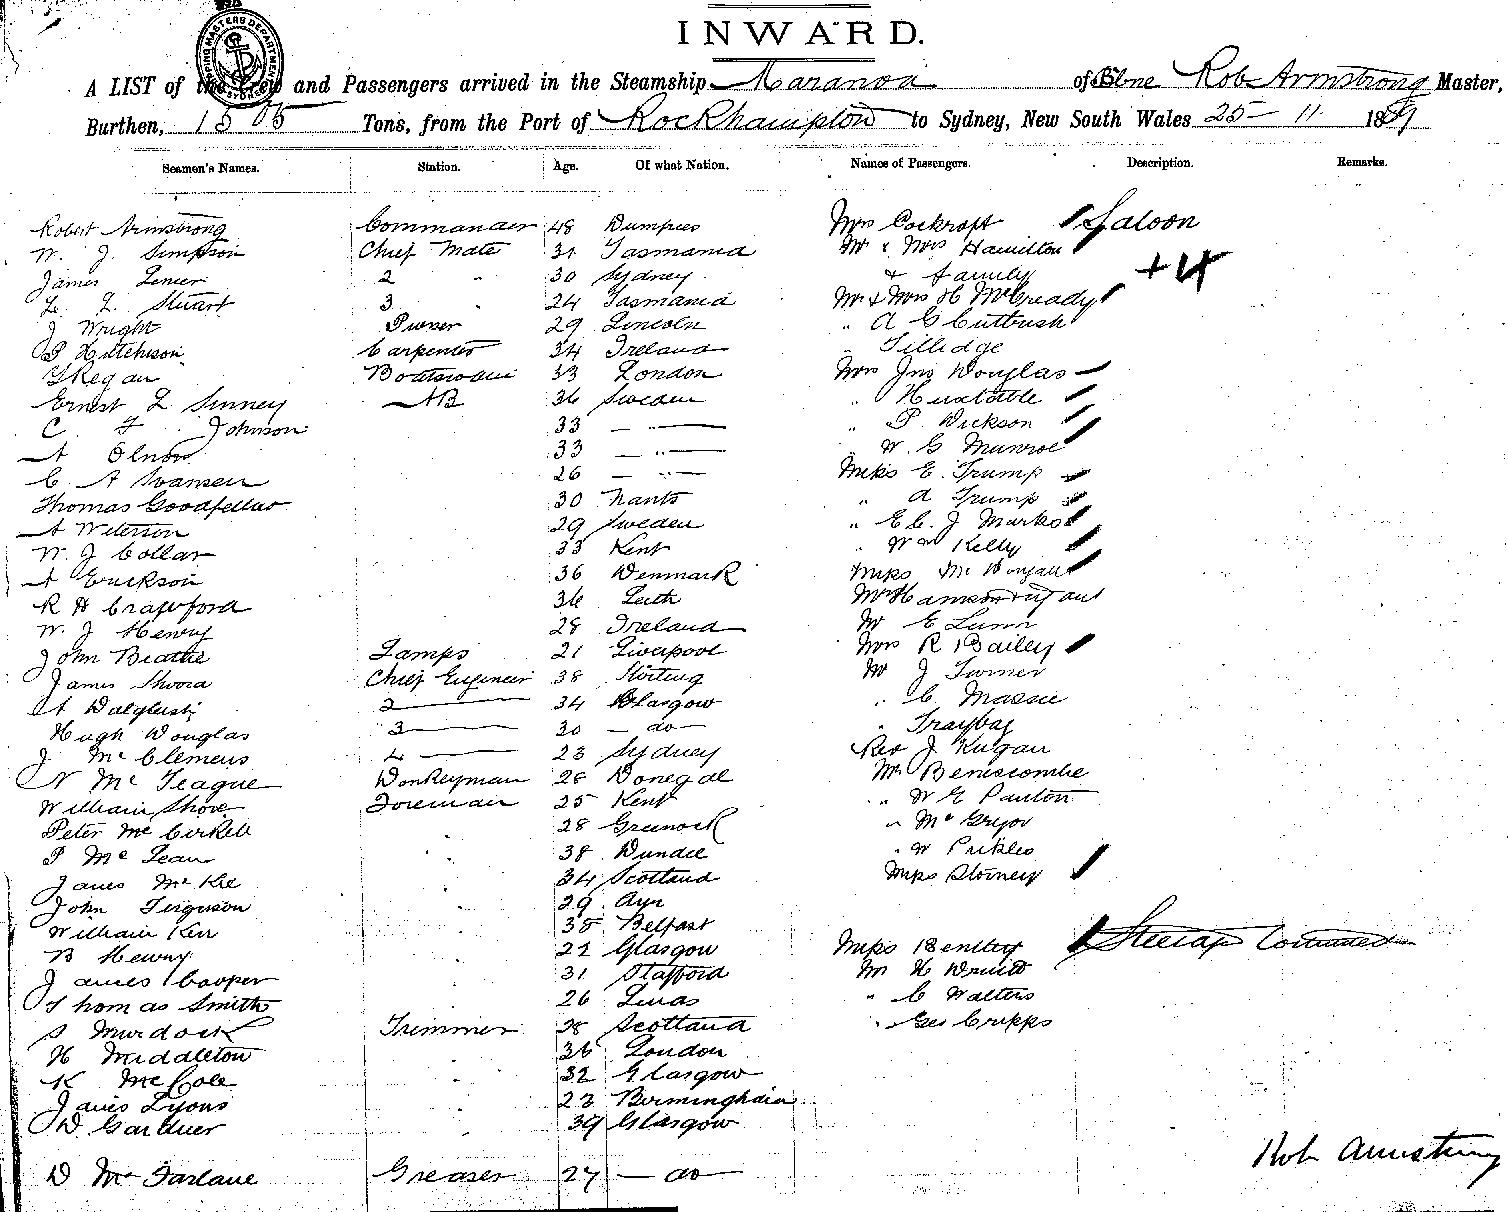 INWARD.
A LIST of the Crew and Passengers arrived in the Steamship Maranoa of Bbne Rob Armstrong Master,
Burthen, 1505 Tons, from the Port of Rockhampton to Sydney, New South Wales 25 - 11 1889
Seamen's Names. Station. Age. Of what Nation. Names of Passengers. Description. Remarks.
Robert Armstrong Commander 48 Dumfries Mrs Cockroft Saloon
W. J. Simpson Chief Mate 31 Tasmania Mr & Mrs Hamilton
James 2 " 30 Sydney & family +4
L. L. Stuart 3 " 24 Tasmania Mr & Mrs H McCready
J Wright Purser 29 Lincoln " A G Cutbush
P Hutchison Carpenter 34 Ireland " Tillidge
T Regan Boatswain 33 London Mrs Jns Douglas
Ernest L Sinney AB 36 Sweden " Huxtable
C F Johnson 33 — " — " P Dickson
A 33 — " — " W. G Munroe
C. A Swansen 26 — " — Miss E. Trump
Thomas Goodfellow 30 Hants " A Trump
A Peterson 29 Sweden " E C. J Marks
W. J Collar 33 Kent " Kelly
A Erickson 36 Denmark Miss
R H Crawford 36 Leith
W. J Henry 28 Ireland Mr E Lunn
John Beattie Lamps 21 Liverpool Mrs R Bailey
James Chief Engineer 38 Stirling Mr J Turner
A Dalgleish 2 — 34 Glasgow " C Massie
Hugh Douglas 3 — 30 — do — "
J McClemens 4 — 23 Sydney Rev J
N McTeague Donkeyman 28 Donegal Mr Beniscombe
William Shove Foreman 25 Kent " W E Panton
Peter Mc 28 Greenock " McGregor
P McLean 38 Dundee " W Pickles
James McKie 34 Scotland Miss
John Ferguson 29 Ayr
William Kerr 35 Belfast
B Henry 22 Glasgow Miss Bentley Steerage Continued
James Cooper 31 Stafford Mr H
Thomas Smith 26 " C Walters
S Murdock Trimmer 28 Scotland " Geo Cripps
H Middleton 36 London
K McCole 32 Glasgow
James Lyons 23 Birmingham
D Gardner 39 Glasgow
D McFarlane Greaser 27 — do —
Rob Armstrong